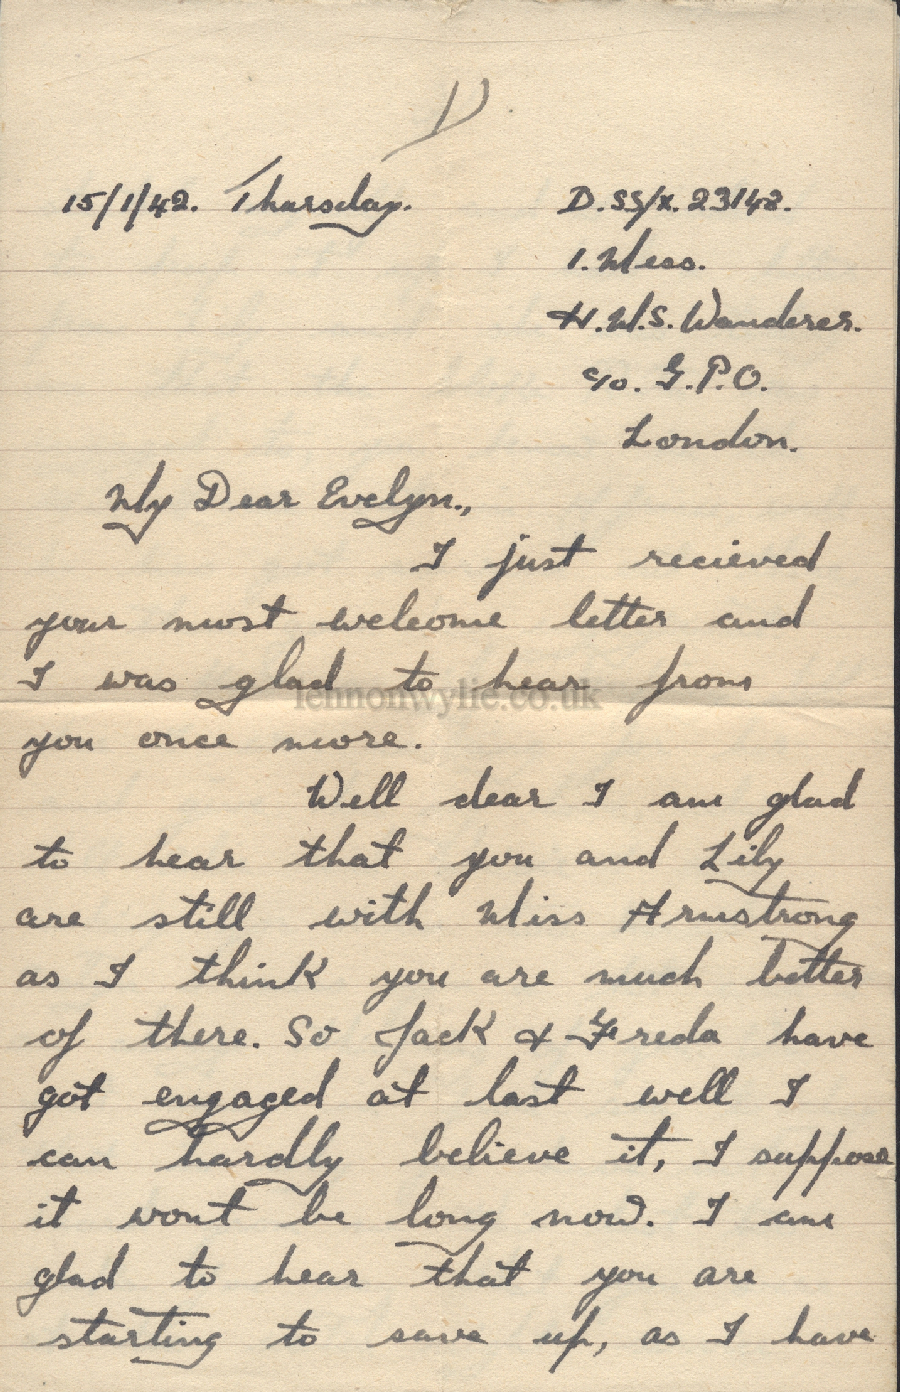 1).
15/1/42. Thursday.
D.SS/X. 23142.
1. Mess.
H.M.S. Wanderer.
c/o. G.P.O.
London.
My Dear Evelyn.,
I just recieved
your most welcome letter and
I was glad to hear from
lennonwylie.co.uk
you once more.
Well dear I am glad
to hear that you and Lily
are still with Miss Armstrong
as I think you are much better
of there. So Jack & Freda have
got engaged at last well I
can hardly believe it, I suppose
it wont be long now. I am
glad to hear that you are
starting to save up, as I have